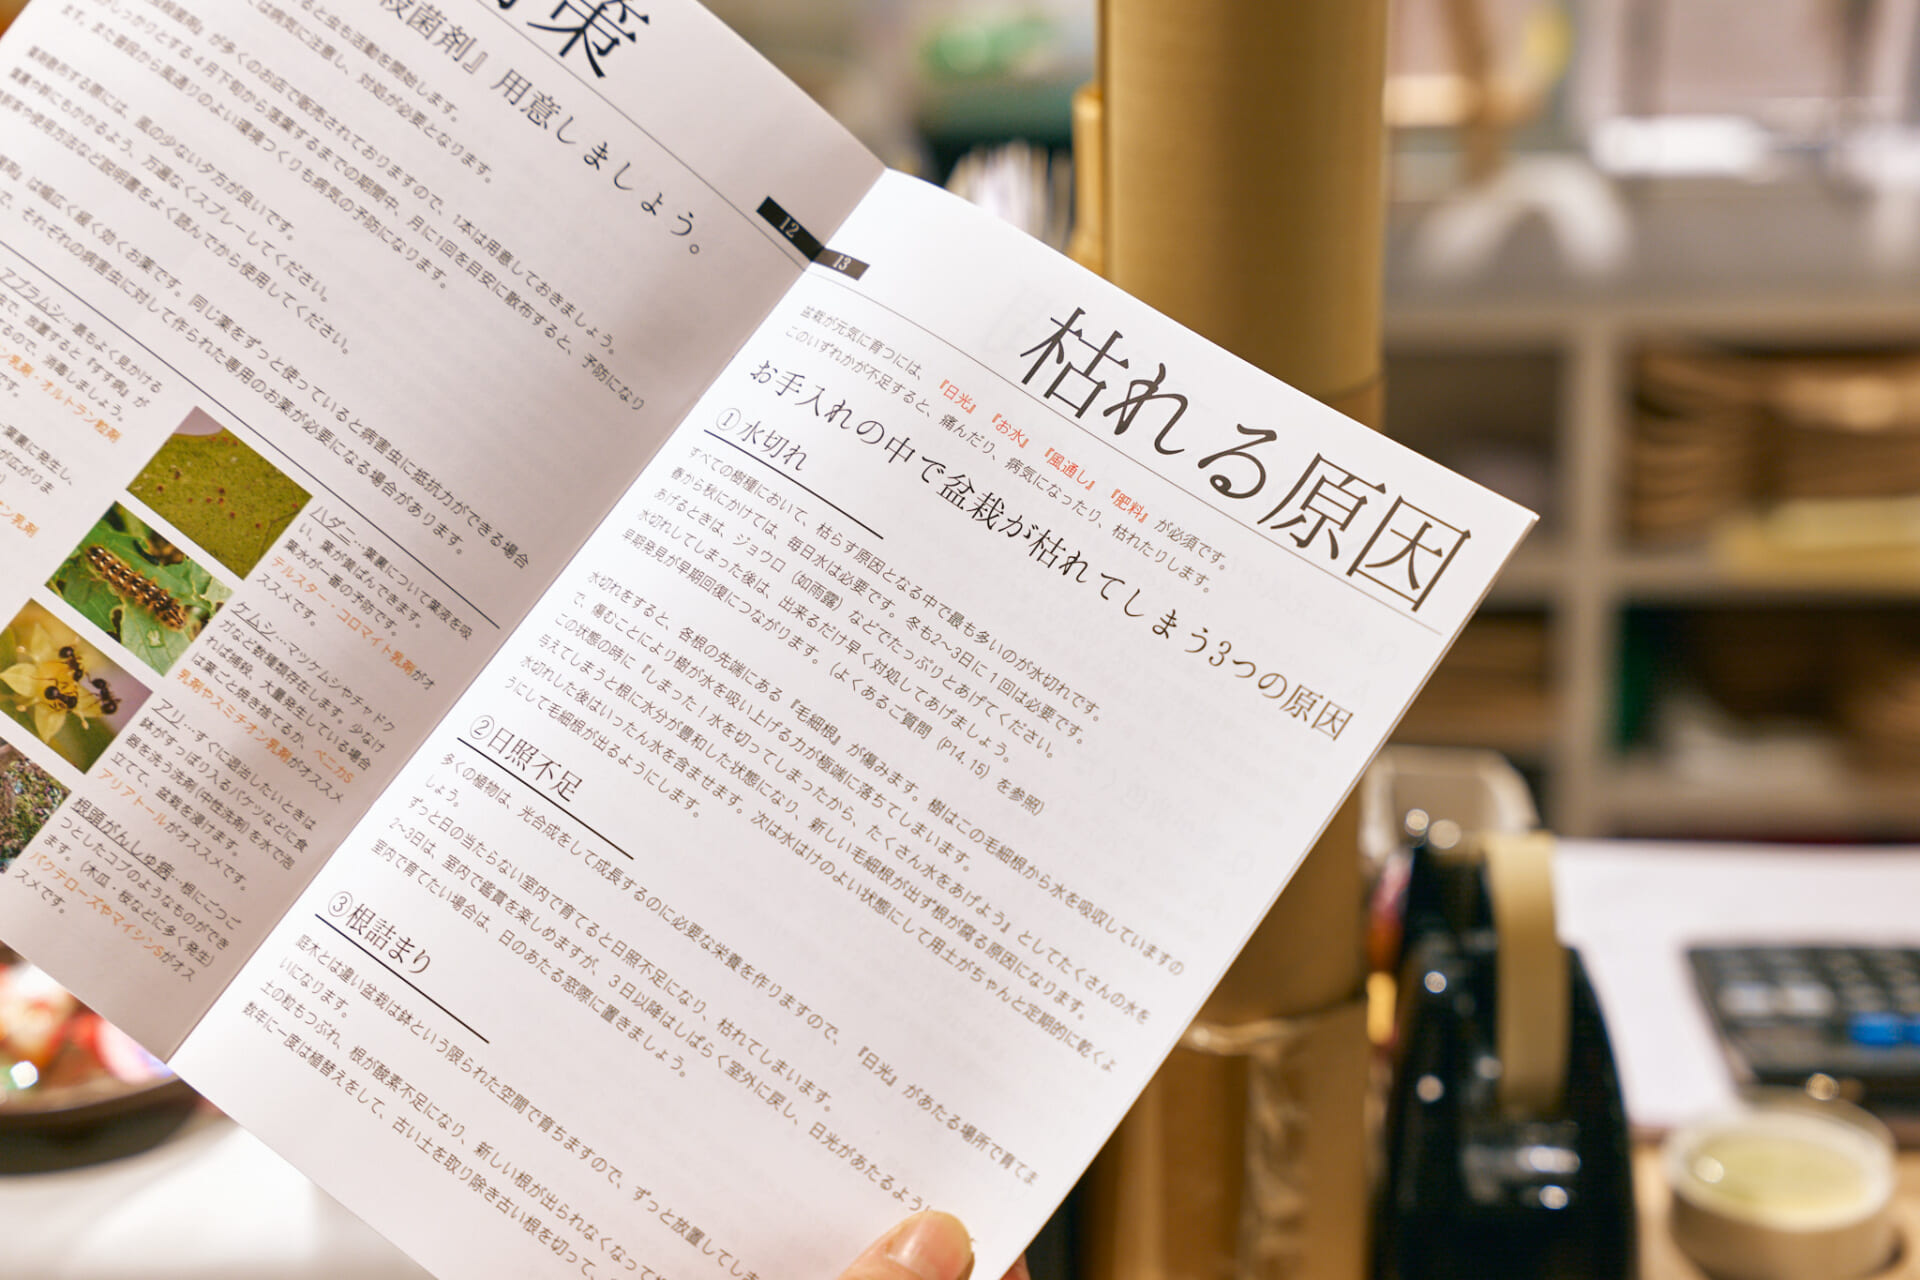 策
殺菌剤』用意しましょう。
ると虫も活動を開始します。
は病気に注意し、対処が必要となります。
が多くのお店で販売されておりますので、1本は用意しておきましょう。
しっかりとする4月下旬から落葉するまでの期間中、月に1回を目安に散布すると、予防になり
ます。また普段から風通りのよい環境づくりも病気の予防になります。
薬剤散布する際には、風の少ない夕方が良いです。
葉裏や幹にもかかるよう、万遍なくスプレーしてください。
使用方法など説明書をよく読んでから使用してください。
は幅広く緩く効くお薬です。同じ薬をずっと使っていると病害虫に抵抗力ができる場合
で、それぞれの病害虫に対して作られた専用のお薬が必要になる場合があります。
アブラムシ…最もよく見かける
で、放置すると『すす病』が
するので、消毒しましょう。
ン乳剤・オルトラン粒剤
です。
…葉裏に発生し、
が広がりま
ン乳剤
ハダニ…葉裏について葉液を吸
い、葉が黄ばんできます。
葉水が一番の予防です。
テルスター・コロマイト乳剤がオ
ススメです。
ケムシ…マツケムシやチャドク
ガなど数種類存在します。少なけ
れば捕殺、大量発生している場合
は葉ごと焼き捨てるか、ベニカS
乳剤やスミチオン乳剤がオススメ
アリ…すぐに退治したいときは
鉢がすっぽり入るバケツなどに食
器を洗う洗剤(中性洗剤)を水で泡
立てて、盆栽を浸けます。
アリアトールがオススメです。
根頭がんしゅ病…根にごつご
つとしたコブのようなものができ
ます。(木瓜・桜などに多く発生)
バクテローズやマイシンSがオス
スメです。
12
13
枯れる原因
盆栽が元気に育つには、『日光』『お水』『風通し』『肥料』が必須です。
このいずれかが不足すると、痛んだり、病気になったり、枯れたりします。
お手入れの中で盆栽が枯れてしまう3つの原因
①水切れ
すべての樹種において、枯らす原因となる中で最も多いのが水切れです。
春から秋にかけては、毎日水は必要です。冬も2~3日に1回は必要です。
あげるときは、ジョウロ(如雨露)などでたっぷりとあげてください。
水切れしてしまった後は、出来るだけ早く対処してあげましょう。
早期発見が早期回復につながります。(よくあるご質問(P14, 15)を参照)
水切れをすると、各根の先端にある『毛細根』が傷みます。樹はこの毛細根から水を吸収していますの
で、傷むことにより樹が水を吸い上げる力が極端に落ちてしまいます。
この状態の時に『しまった!水を切ってしまったから、たくさん水をあげよう』としてたくさんの水を
与えてしまうと根に水分が豊和した状態になり、新しい毛細根が出ず根が腐る原因になります。
水切れした後はいったん水を含ませます。次は水はけのよい状態にして用土がちゃんと定期的に乾くよ
うにして毛細根が出るようにします。
②日照不足
多くの植物は、光合成をして成長するのに必要な栄養を作りますので、『日光』があたる場所で育てま
しょう。
ずっと日の当たらない室内で育てると日照不足になり、枯れてしまいます。
2~3日は、室内で鑑賞を楽しめますが、3日以降はしばらく室外に戻し、日光があたるように
室内で育てたい場合は、日のあたる窓際に置きましょう。
③根詰まり
庭木とは違い盆栽は鉢という限られた空間で育ちますので、ずっと放置してしま
いになります。
土の粒もつぶれ、根が酸素不足になり、新しい根が出られなくなって
数年に一度は植替えをして、古い土を取り除き古い根を切って、